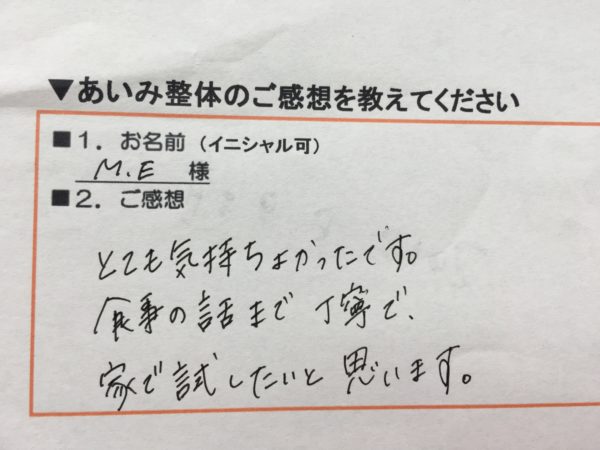 ▼あいみ整体のご感想を教えてください
■1．お名前（イニシャル可）
M.E 様
■2．ご感想
とても気持ちよかったです。
食事の話まで丁寧で、
家で試したいと思います。